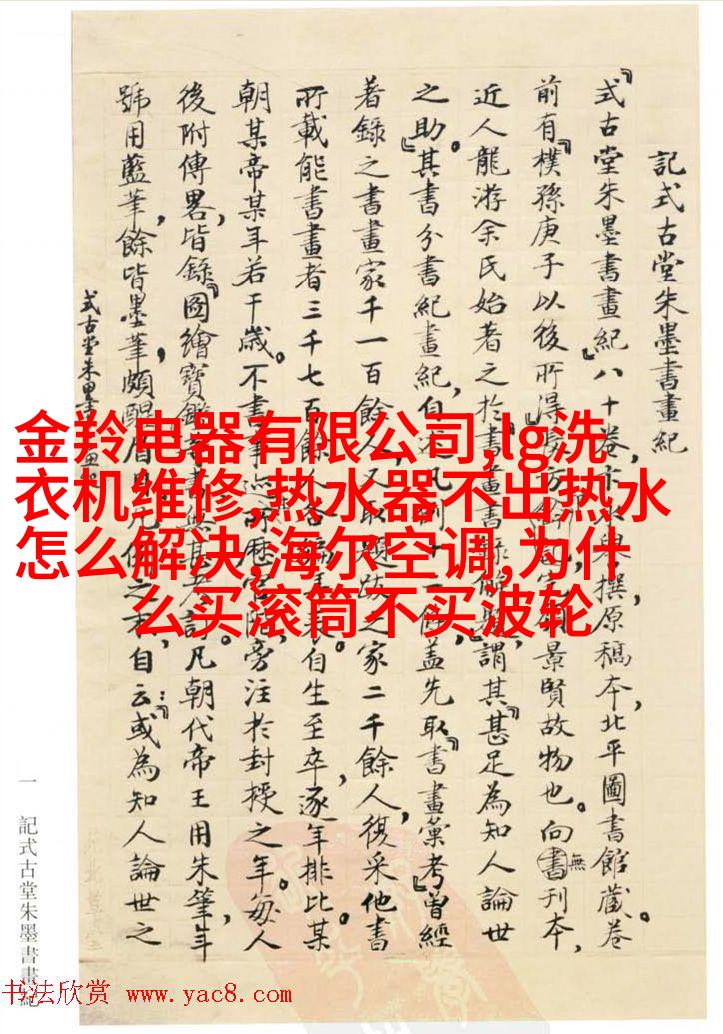 記式古堂朱墨書畫紀
『式古堂朱墨書畫紀』八十卷,卞永譽撰原稿本,北平圖書館藏。卷
前有『樸孫庚子以後所得』景賢故物也。向無刊本,
近人龍游余氏始著之於『書畫書錄解題』謂其『甚足為知人論世
之助。』其書分書紀畫紀,自述凡例十二條,蓋先取『書畫彙考』曾經
著錄之書畫家千一百餘人,又取題跋之家二千餘人,復采他書
所載能書畫者三千七百餘人,各編年表。自生至卒,逐年排比某
朝某帝某年若干歲。不書事迹,所歷官階,旁注於封授之年。每人
後附傳畧,皆錄『圖繪寶鑑』等書,無甚考訂。凡朝代帝王用朱筆,年
號用藍筆,餘皆墨筆,頗醒眉目,
自云:或為知人論世之
式古堂朱墨書畫紀
金羚电器有限公司,lg洗
衣机维修,热水器不出热水
怎么解决,海尔空调,为什
么买滚筒不买波轮
一
記式古堂朱墨書畫紀
书法欣赏 www.yac8.com